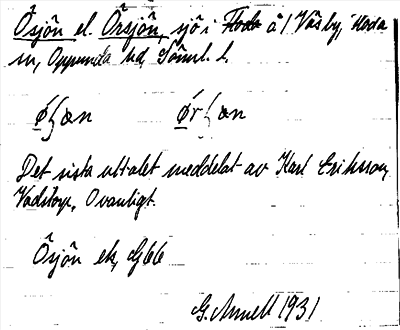 Ösjön el. Örsjön, sjö i Floda å / Väsby, Floda
sn, Oppunda hd, Söml. l.
Det sista uttalet meddelat av Karl Eriksson,
Vadstorp, Ovanligt.
Ösjön ek, G66
G. Arnell 1931